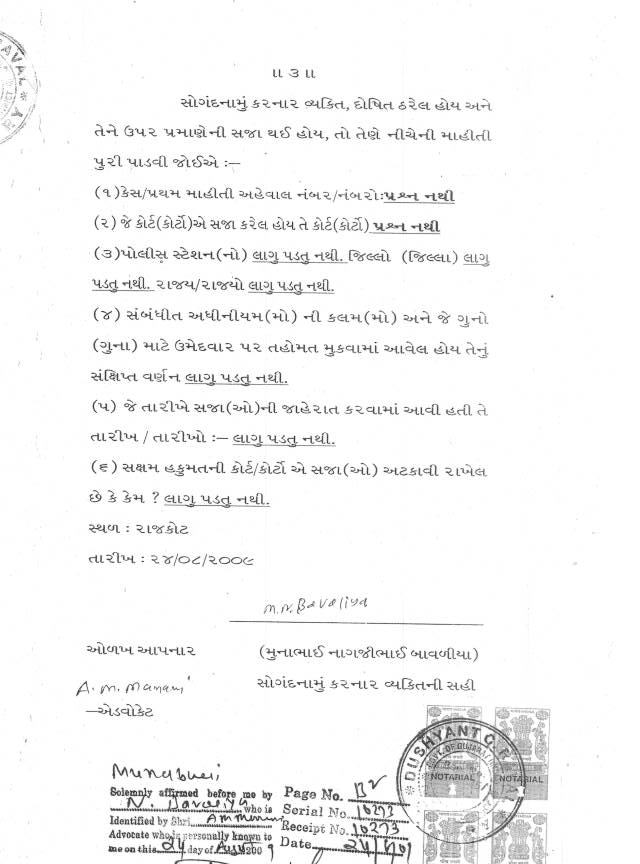 ।। ૩ ।।
સોગંદનામું કરનાર વ્યકિત, દોષિત ઠરેલ હોય અને
તેને ઉપર પ્રમાણેની સજા થઈ હોય, તો તેણે નીચેની માહીતી
પુરી પાડવી જોઈએ :—
(૧)કેસ/પ્રથમ માહીતી અહેવાલ નંબર/નંબરોઃપ્રશ્ન નથી
(૨) જે કોર્ટ(કોર્ટો)એ સજા કરેલ હોય તે કોર્ટ(કોર્ટો) પ્રશ્ન નથી
(૩)પોલીસ સ્ટેશન(નો) લાગુ પડતુ નથી. જિલ્લો (જિલ્લા) લાગુ
પડતુ નથી. રાજય/રાજયો લાગુ પડતુ નથી.
(૪) સંબંધીત અધીનીયમ(મો) ની કલમ(મો) અને જે ગુનો
(ગુના) માટે ઉમેદવાર પર તહોમત મુકવામાં આવેલ હોય તેનું
સંક્ષિપ્ત વર્ણન લાગુ પડતુ નથી.
(૫) જે તારીખે સજા(ઓ)ની જાહેરાત કરવામાં આવી હતી તે
તારીખ / તારીખો :— લાગુ પડતુ નથી.
(૬) સક્ષમ હકુમતની કોર્ટ/કોર્ટો એ સજા(ઓ) અટકાવી રાખેલ
છે કે કેમ ? લાગુ પડતુ નથી.
સ્થળ : રાજકોટ
તારીખ : ૨૪/૦૮/૨૦૦૯
M.N. Bavaliya
ઓળખ આપનાર (મુનાભાઈ નાગજીભાઈ બાવળીયા)
A. M. Manani સોગંદનામું કરનાર વ્યકિતની સહી
—એડવોકેટ
DUSHYANT C.
NOTARIAL NOTARIAL
Munabhai
Solemnly affirmed before me by Page No.
N. Bavaliya who is Serial No.
Identified by Shri. A M Manani Receipt No. 10273
Advocate who is personally known to Date
me on this 24 day of August 2009